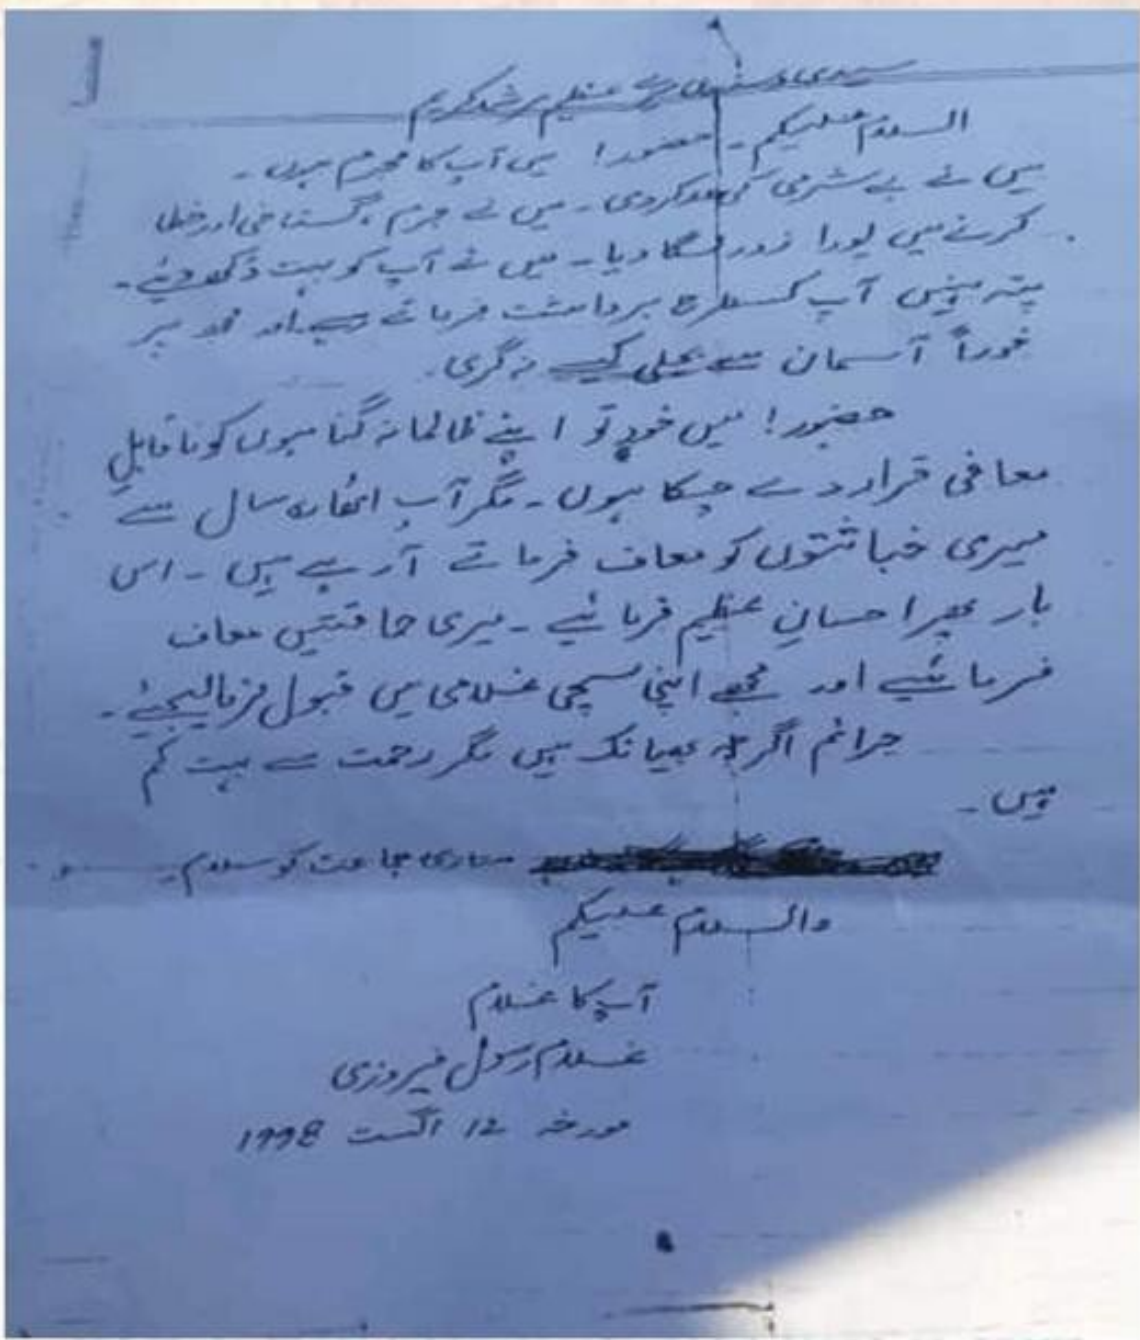 سیدی و مرشدی میرے عظیم مرشد کریم
السلام علیکم۔ حضور! میں آپ کا مجرم ہوں۔
میں نے بے شرمی کی حد کردی۔ میں نے جرم، گستاخی اور خطا
کرنے میں پورا زور لگا دیا۔ میں نے آپ کو بہت دکھ دیئے۔
پتہ نہیں آپ کسطرح برداشت فرماتے رہے اور مجھ پر
فوراً آسمان سے بجلی کیسے نہ گری۔
حضور! میں خود تو اپنے ظالمانہ گناہوں کو ناقابلِ
معافی قرار دے چکا ہوں۔ مگر آپ اٹھارہ سال سے
میری خباثتوں کو معاف فرماتے آرہے ہیں۔ اس
بار پھر احسانِ عظیم فرمائیے۔ میری حماقتیں معاف
فرمائیے اور مجھے اپنی سچی غلامی میں قبول فرمالیجئے۔
جرائم اگرچہ بھیانک ہیں مگر رحمت سے بہت کم
ہیں۔
ساری جماعت کو سلام۔
والسلام علیکم
آپ کا غلام
غلام رسول فیروزی
مورخہ 12 اگست 1998